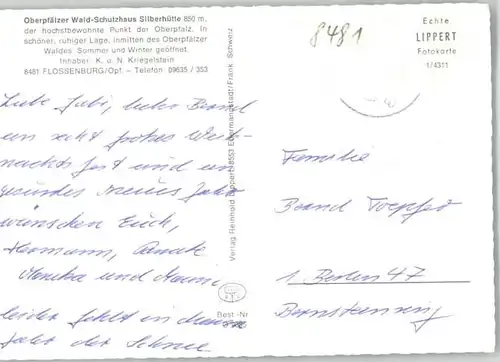 Oberpfälzer Wald-Schutzhaus Silberhütte 850 m,
der höchstbewohnte Punkt der Oberpfalz. In
schöner, ruhiger Lage, inmitten des Oberpfälzer
Waldes. Sommer und Winter geöffnet.
Inhaber: K. u. N. Kriegelstein
8481 FLOSSENBÜRG/Opf. - Telefon 09635 / 353
8481
Echte
LIPPERT
Fotokarte
1/4311
Liebe Gabi, lieber Bernd
ein recht frohes Weih-
nachtsfest und ein
gesundes neues Jahr
wünschen Euch,
Hermann, Renate
Monika und
leider fehlt in diesem
Jahr der Schnee
Verlag Reinhold Lippert, 8553 Ebermannstadt/Fränk. Schweiz
Best.-Nr.
Familie
Bernd
1 Berlin 47